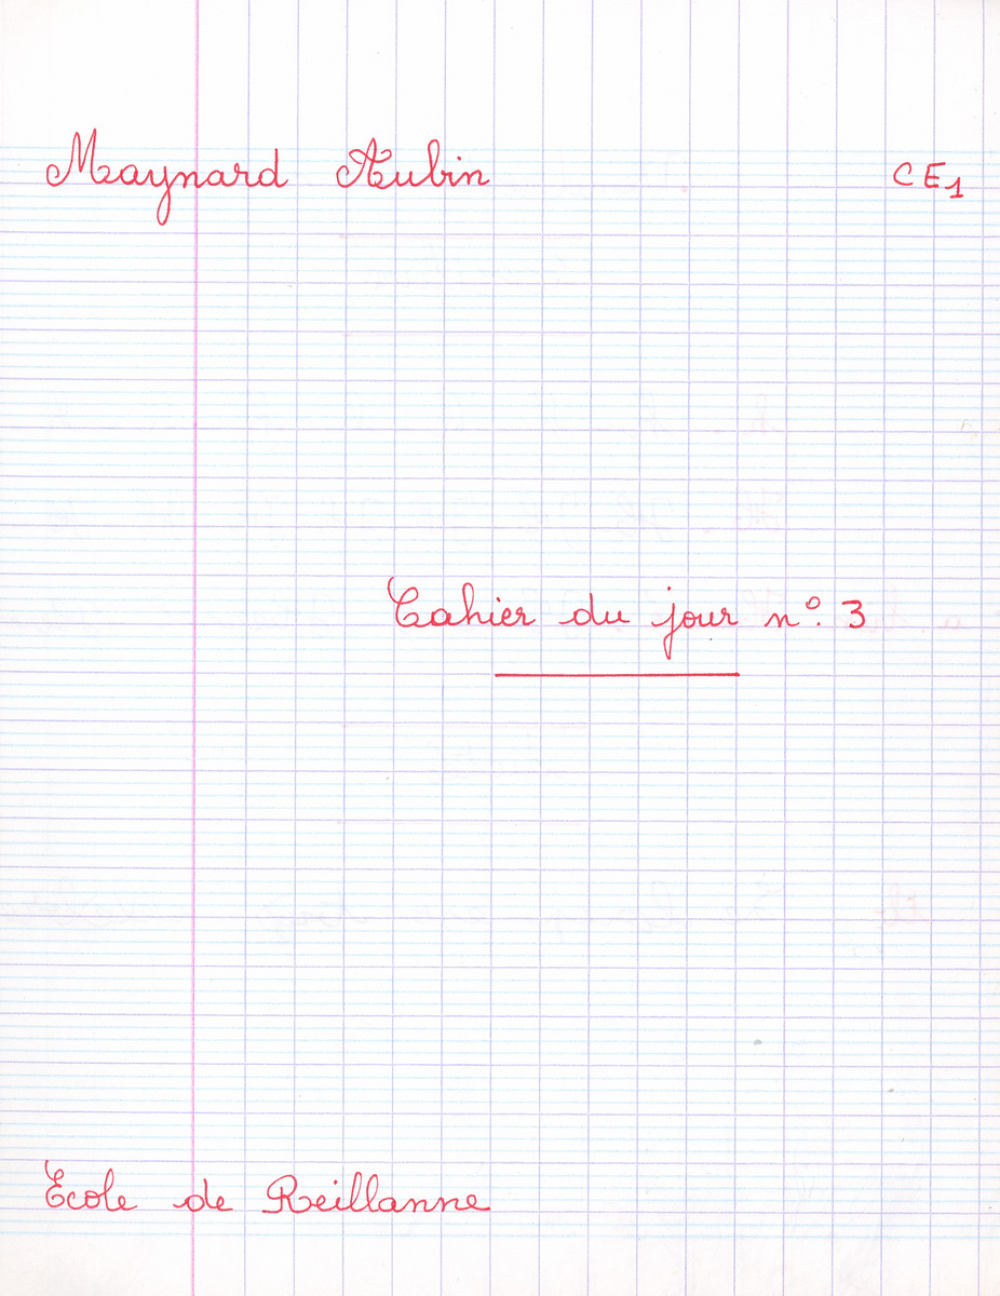 Maynard Aubin CE1
Cahier du jour n°. 3
Ecole de Reillanne